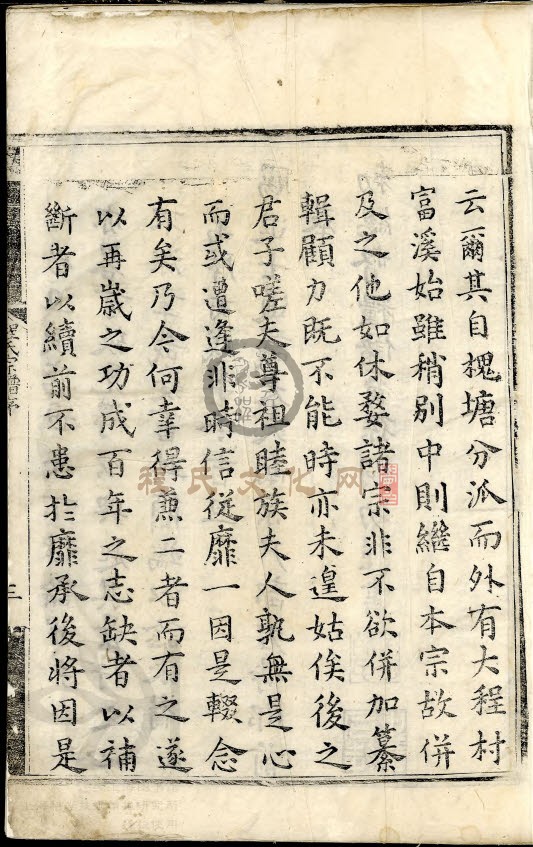 云爾其自槐塘分派而外有大程村
富溪始雖稍别中則繼自本宗故併
及之他如休婺諸宗非不欲併加纂
輯顧力既不能時亦未遑姑俟後之
君子嗟夫尊祖睦族夫人孰無是心
而或遭逢非時信從靡一因是輟念
有矣乃今何幸得兼二者而有之遂
以再歲之功成百年之志缺者以補
斷者以續前不患扵靡承後將因是
程氏宗譜序
三
程氏文化网